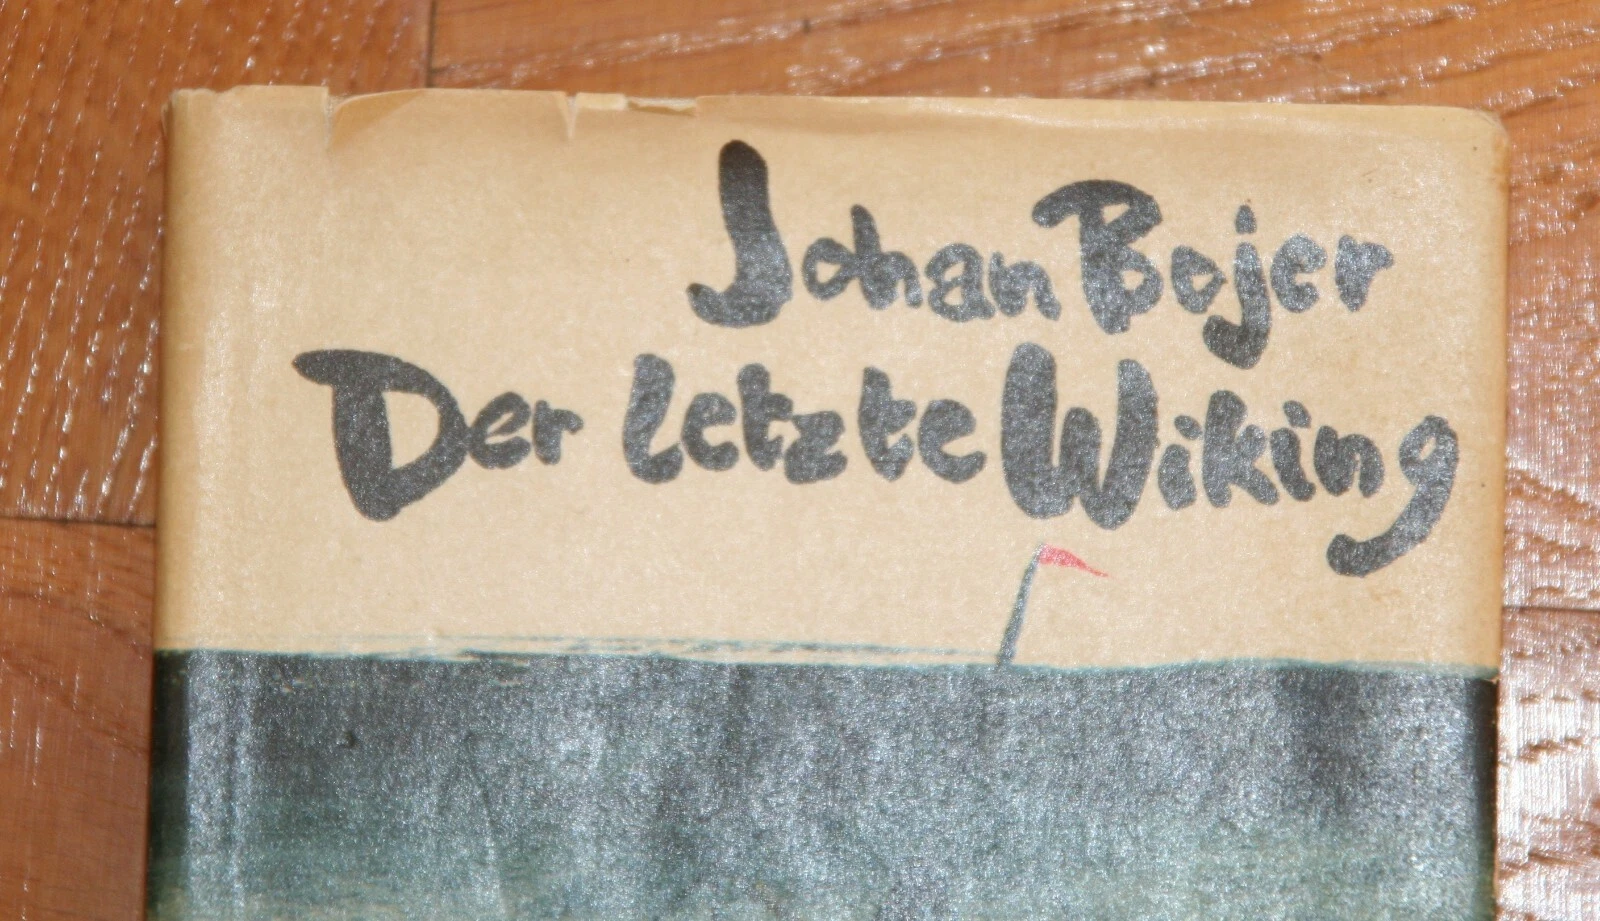 Johan Bojer
Der letzte Wiking